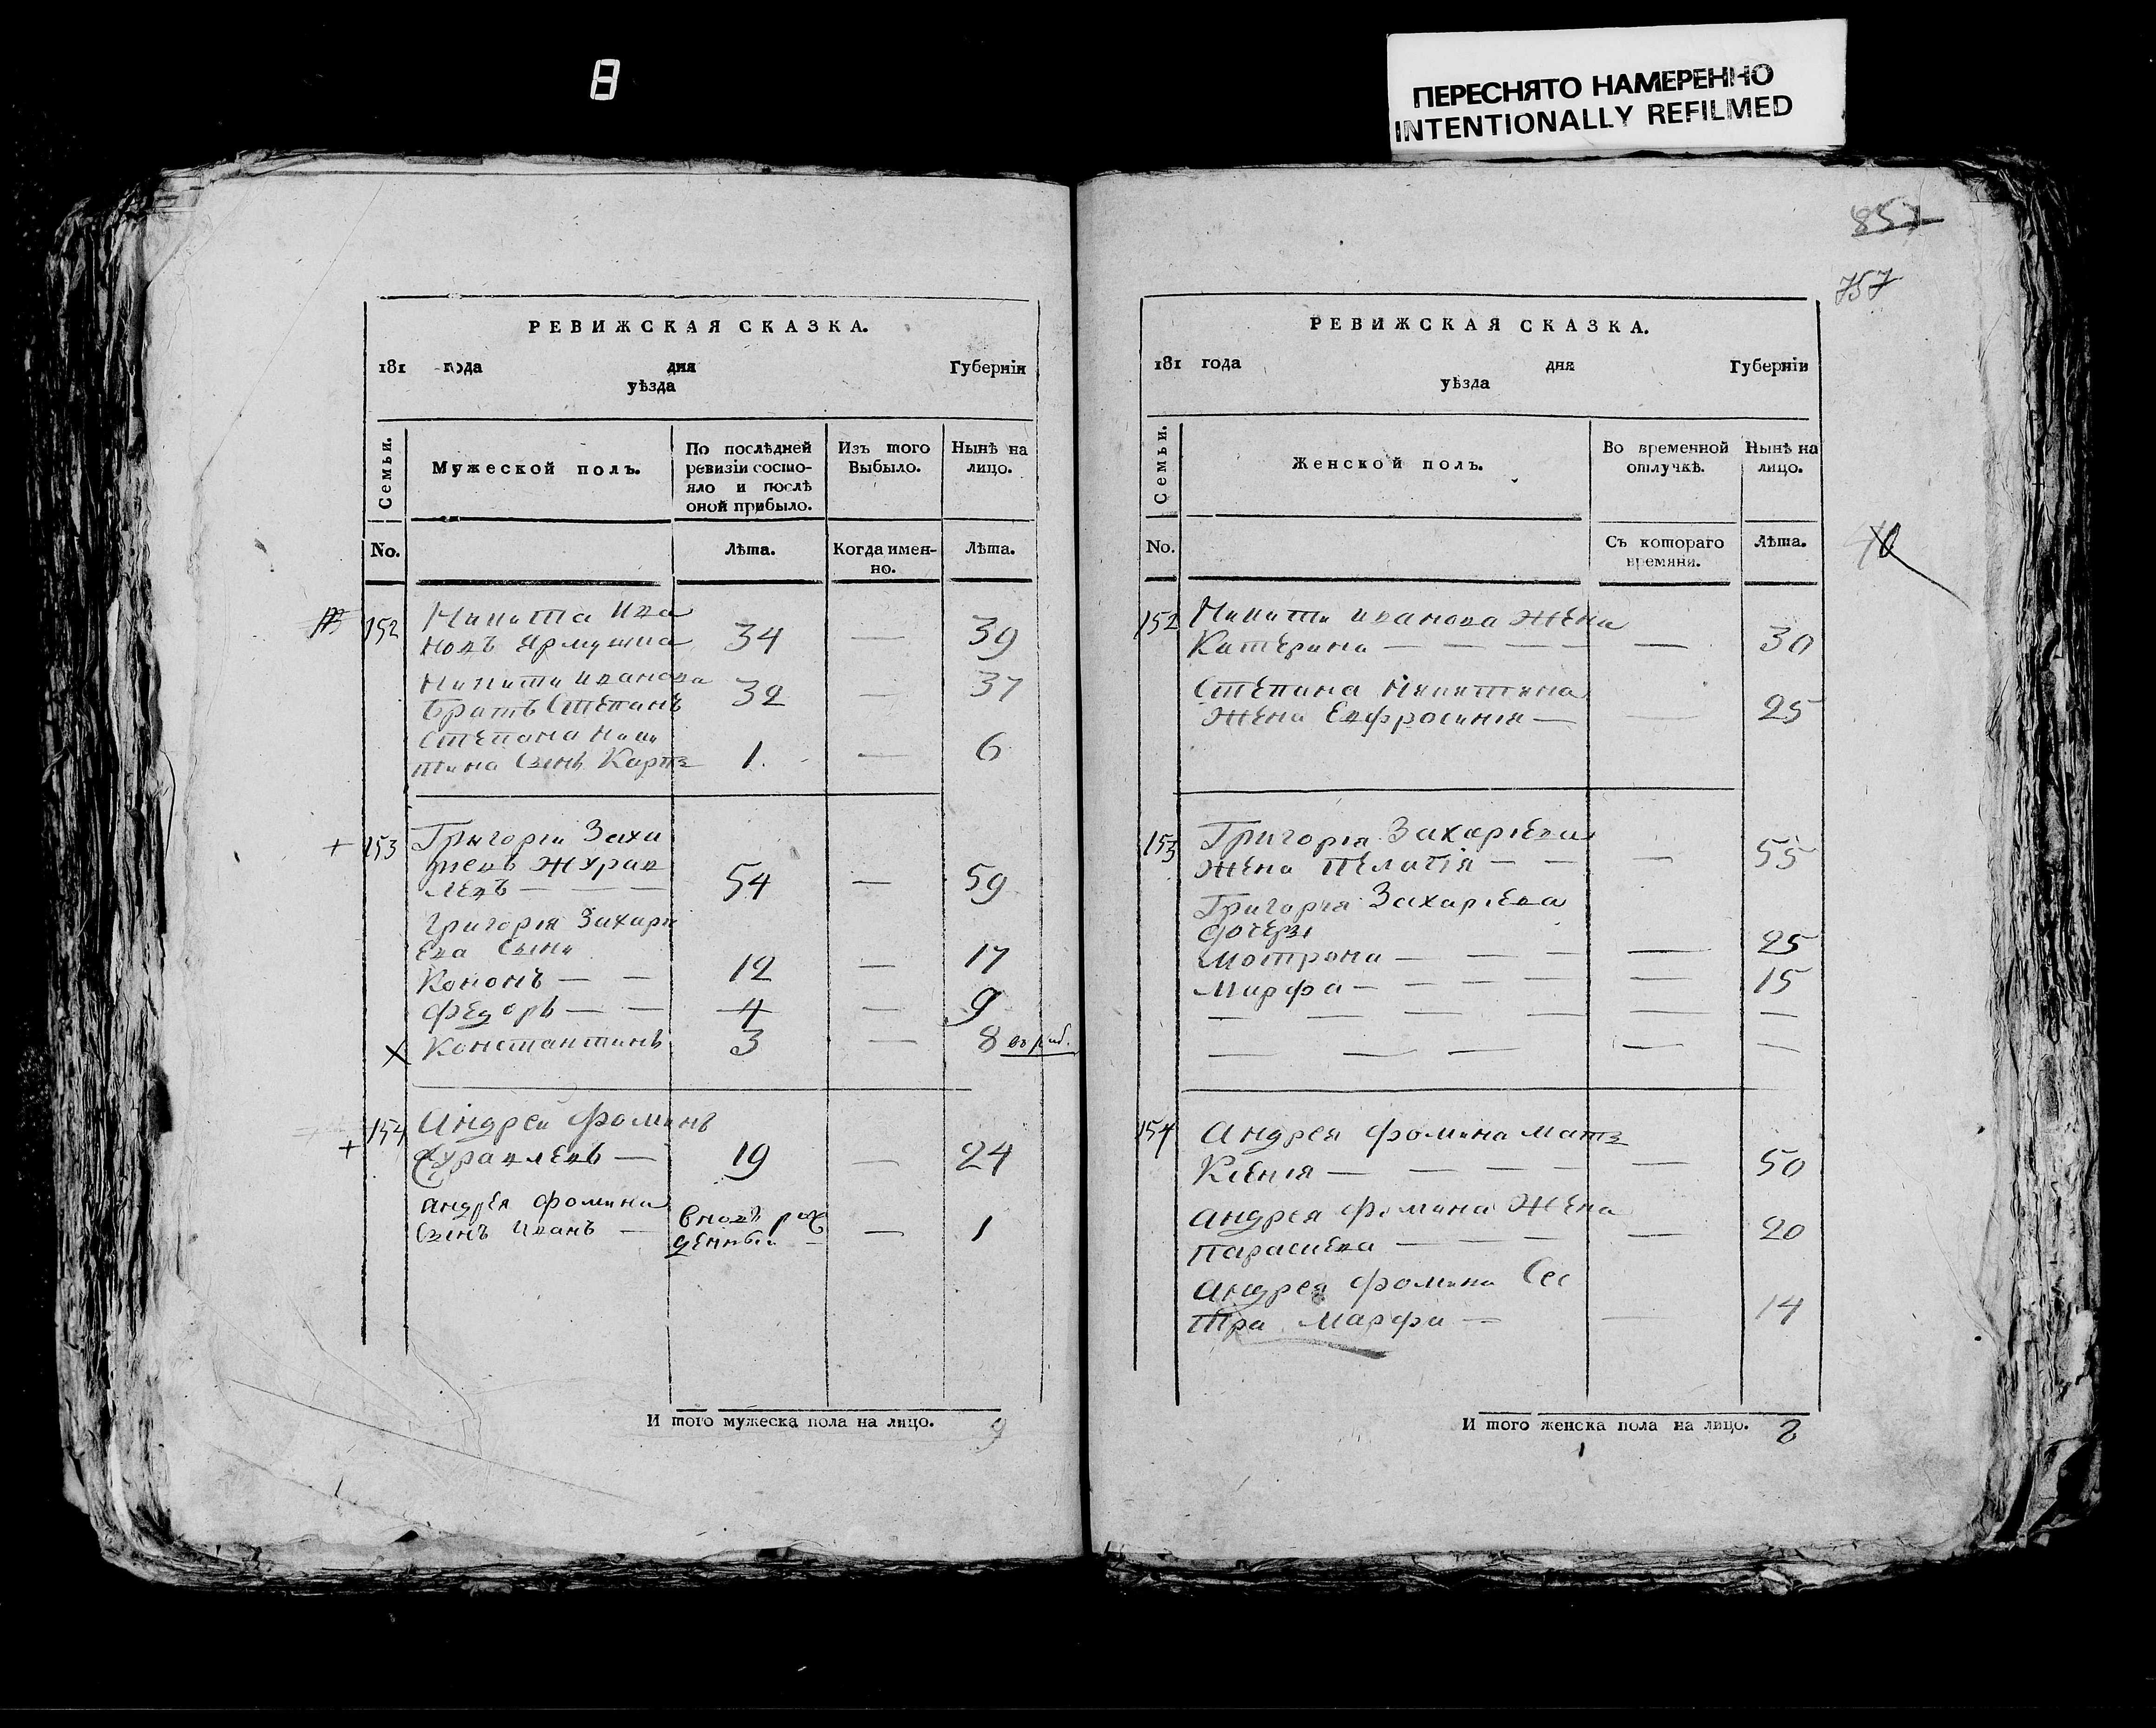 8
ПЕРЕСНЯТО НАМЕРЕННО
INTENTIONALLY REFILMED
РЕВИЖСКАЯ СКАЗКА.
181 года дня Губерніи
уѣзда
Семьи.
Мужеской полъ.
По послѣдней ревизіи состояло и послѣ оной прибыло.
Изъ того Выбыло.
Нынѣ на лицо.
No.
Лѣта.
Когда именно.
Лѣта.
152 Никита Ива
новъ Ярмушка 34 — 39
Никиты иванова
братъ Степанъ 32 — 37
Степана Ники
тина Сынъ Карпъ 1. — 6
+ 153 Григорій Заха
риевъ Журав
левъ — — — 54 — 59
Григорія Захари
ева Сыни
Кононъ — — 12 — 17
Федоръ — — 4 — 9
X Константинъ 3 — 8
+ 154 Андрей Фоминъ
Журавлевъ — 19 — 24
Андрея Фомина
Сынъ Иванъ — вновь рож
денный — — 1
И того мужеска пола на лицо. 9
857
757
РЕВИЖСКАЯ СКАЗКА.
181 года дня Губерніи
уѣзда
Семьи.
Женской полъ.
Во временной отлучкѣ.
Нынѣ на лицо.
No.
Съ котораго времяни.
Лѣта.
152 Никиты иванова Жена
Катерина — — — — — 30
Степана Никитина
Жена Евфросиния — — 25
153 Григорія Захариева
Жена Пелагія — — — 55
Григорія Захариева
дочери
Мотрона — — — — 25
Марфа — — — — — 15
— — — — — — —
— — — — —
154 Андрея Фомина мать
Ксенія — — — — — 50
Андрея Фомина Жена
Параскева — — — — 20
Андрея Фомина Сес
тра Марфа — — 14
И того женска пола на лицо. 8